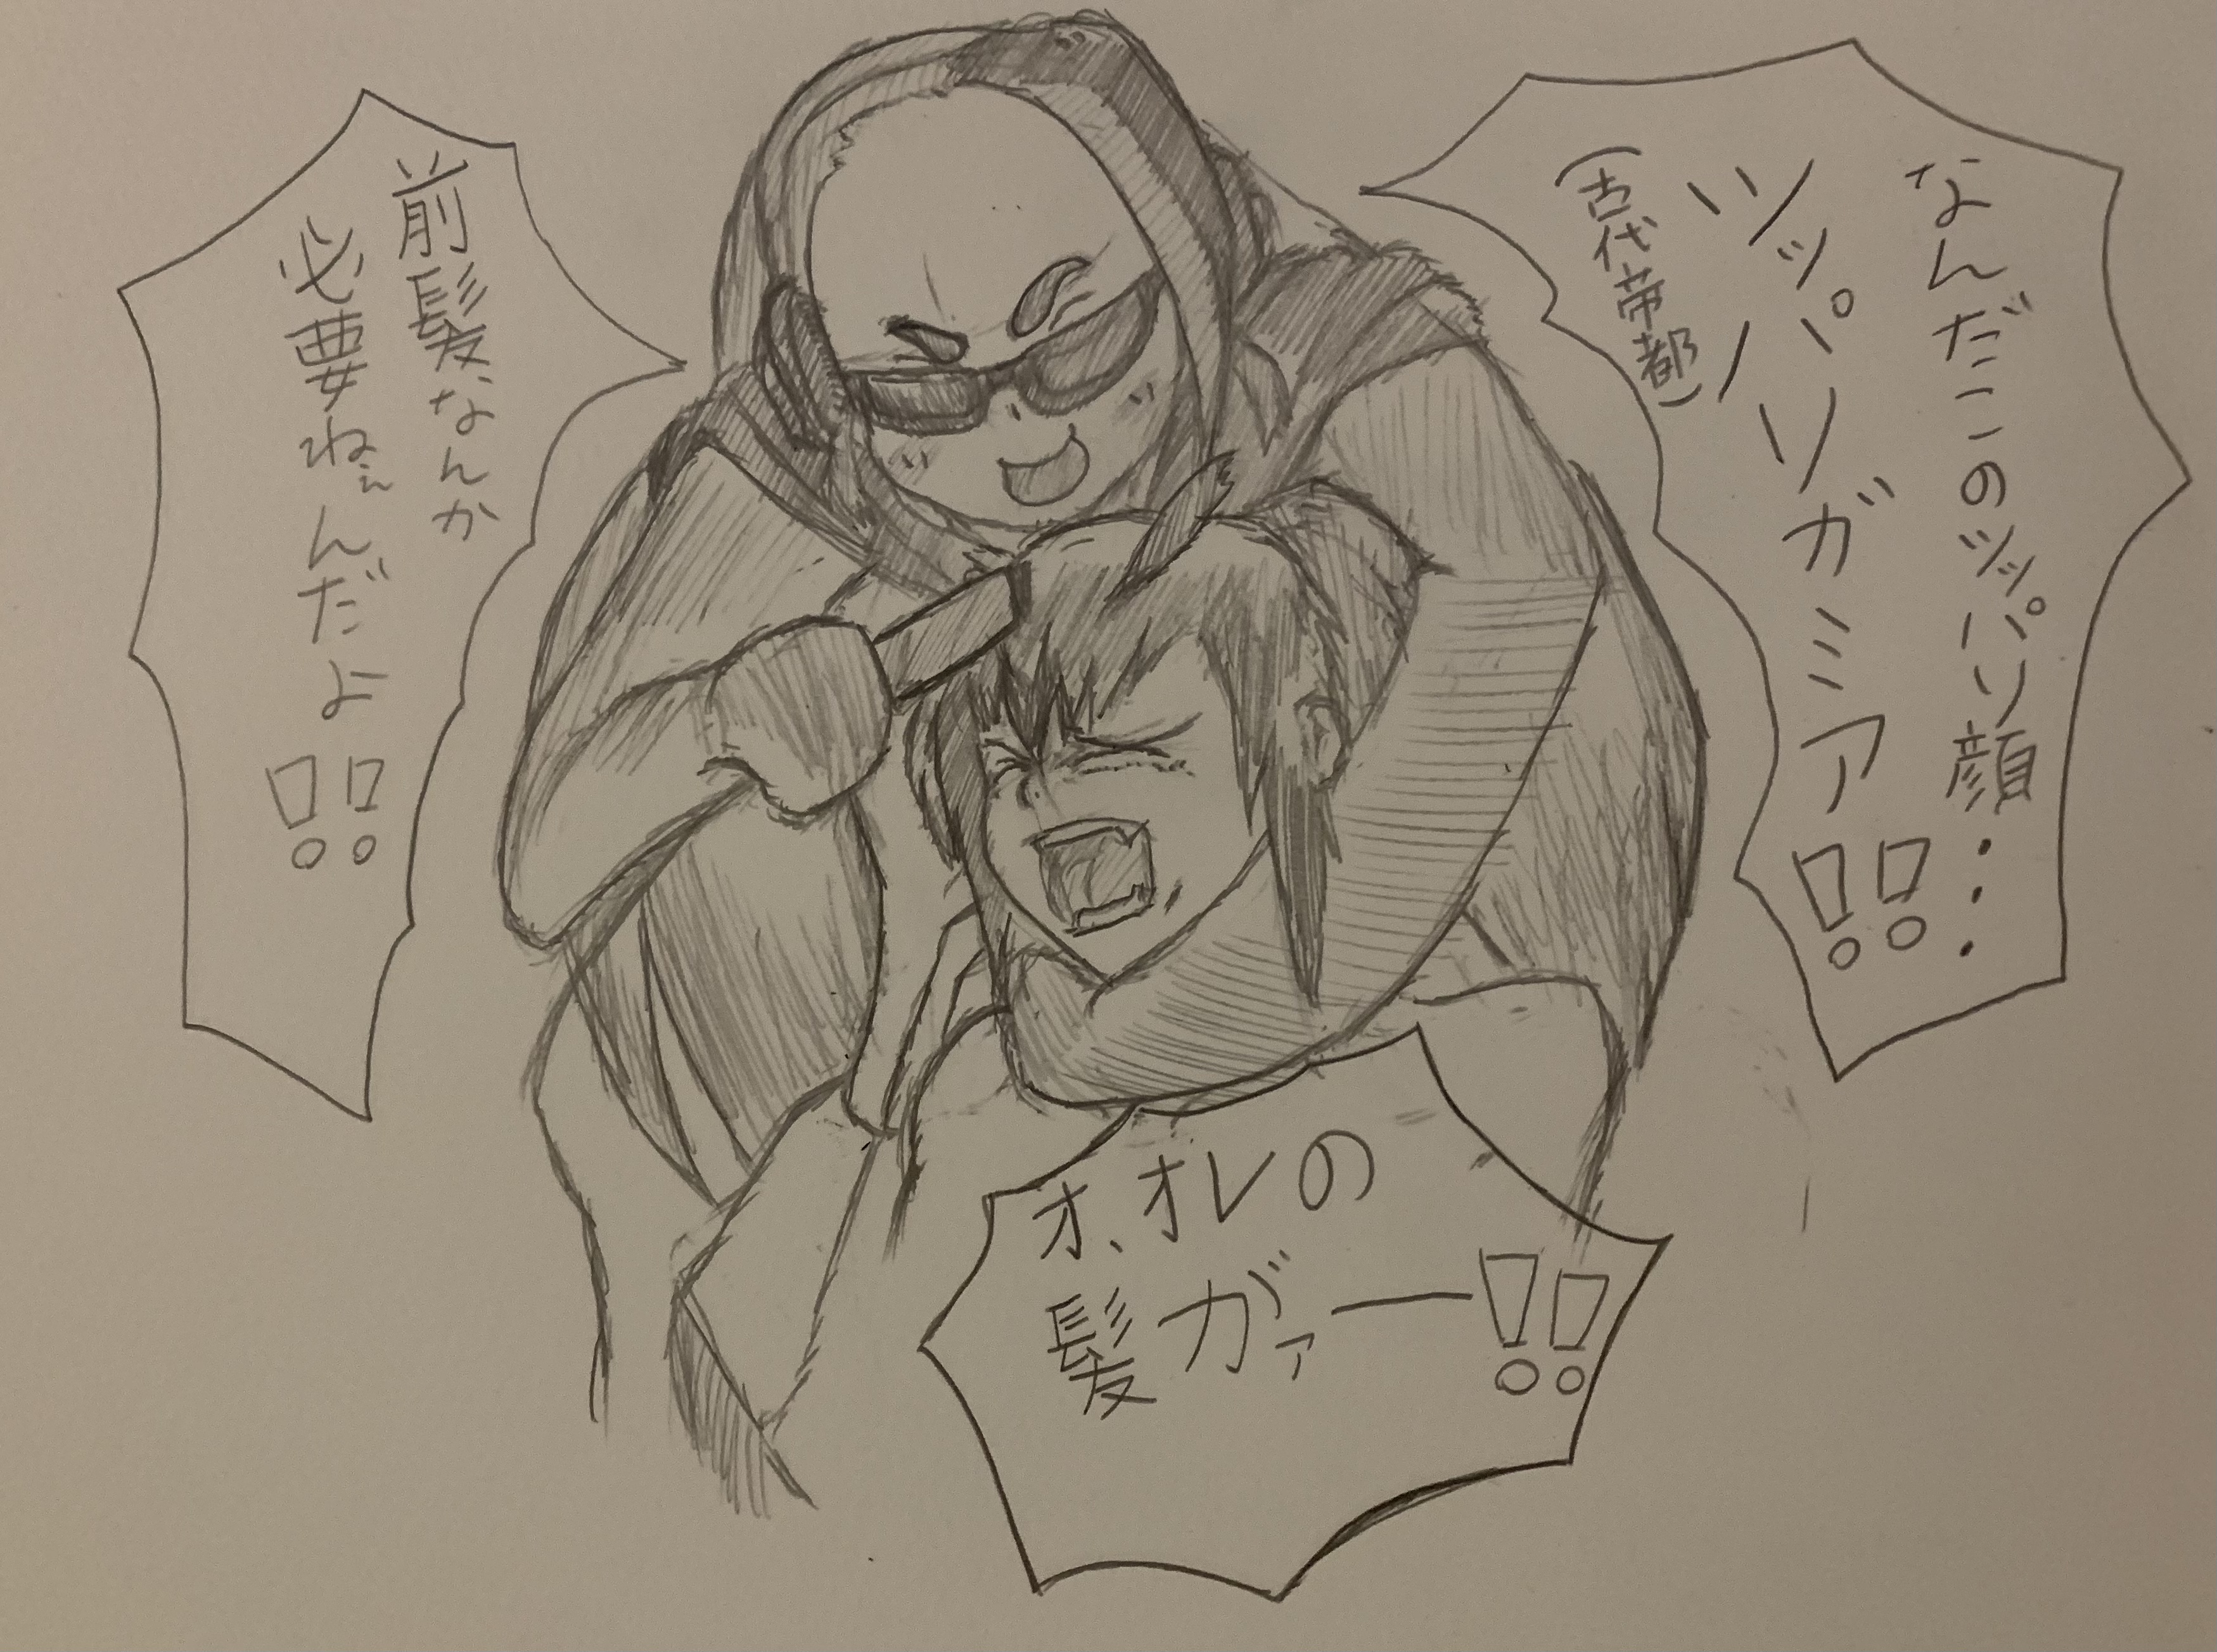 なんだこのツッパリ顔・・・
ツッパリガミア!!
(古代帝都)
前髪なんか
必要ねぇんだよ!!
オ、オレの
髪がァー!!